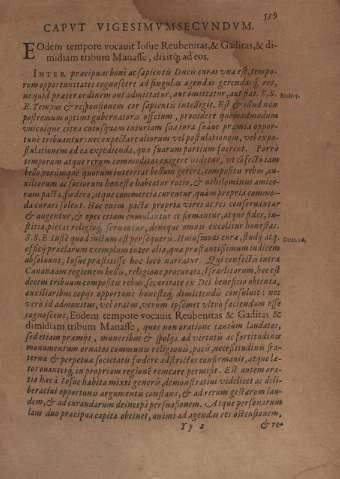 539
CAPVT VIGESIMVMSECVNDVM.
EOdem tempore vocauit Iosue Reubenitas, & Gaditas, & di-
midiam tribum Manasse, dixitq́; ad eos.
INTER præcipuas boni ac sapientis Ducis curas vna est, tempo-
rum opportunitates cognoscere ad singulas agendas gerendasq́; res,
ne quid præter ordinem aut admittatur, aut omittatur, aut fiat. S.S.
E. Tempus & responsionem cor sapientis intelligit. Est & illud non
postremum optimi gubernatoris officium, prouidere quemadmodum
vnicuique extra cuiusquam iniuriam sua iura suaue præmia oppor-
tune tribuantur: nec expectare alterum vel postulationem, vel expo-
stulationem ad ea expedienda, quæ suarum partium fuerint. Porro
temporum atque rerum commoditas exigere videtur, vt cōfecto iam
bello pacique quorum intererat bellum gerere, compositis rebus, au-
xiliorum ac sociorum honesta habeatur ratio, & nobilissimus amico-
rum pacta, fœdera, atque commercia curentur, quàm propria commo-
da curari solent. Hac enim pacto propria vires ac res conseruantur
& augentur, & opes etiam cumulantur ac firmantur, atque fides, iu-
stitia, pietas religioq́; seruantur, denique omnis excolitur honestas.
S.S.E Iuste quod iustum est persequeris. Huiusmodi curæ, studij atq́;
officij præclarum exemplum inter alia, quæ præstantissimum iudicem
absoluunt, Iosue præstitisse hoc loco narratur. Qui confecto intra
Canaanim regionem bello, religione procurata, Israëlitarum, hoc est
decem tribuum compositis rebus, securitate ex Dei beneficio obtenta,
auxiliaribus copijs opportunè honesteq́; dimittendis consoluit: nec
verò id admonitus, vel oratus, verùm ipsomet vltro faciendum esse
cognoscens, Eodem tempore vocauit Reubenitas & Gaditas &
dimidiam tribum Manasse, quos non oratione tantùm laudatos,
sed etiam præmijs, muneribus & spolijs ad virtutis ac fortitudinis
monumentum ornatos communis religionis, pacis, necessitudinis fra-
terna & perpetua societatis fœdere adstrictos confirmatis, atque læ-
tos ouanteśq́; in propriam regionē remeare permisit. Est autem ora-
tio hæc à Iosue habita mixti generis, demonstratiui videlicet ac deli-
beratiui opportunis argumentis constans, & ad rerum gestarum lau-
dem, & ad curandarum deinceps persuasionem. Atque personarum
laus duo præcipua capita obtinet, animi ad agendas res ostensionem,
Yy 2
& re-